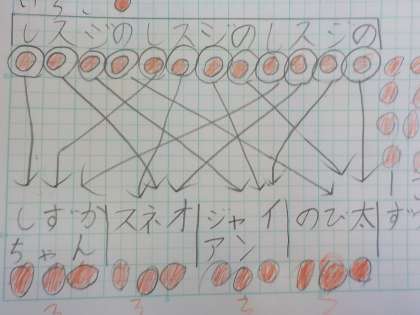 しスジのしスジのしスジの
しずか スネオ ジャイ のび太 ず
ちゃん アン
3 3 3 3